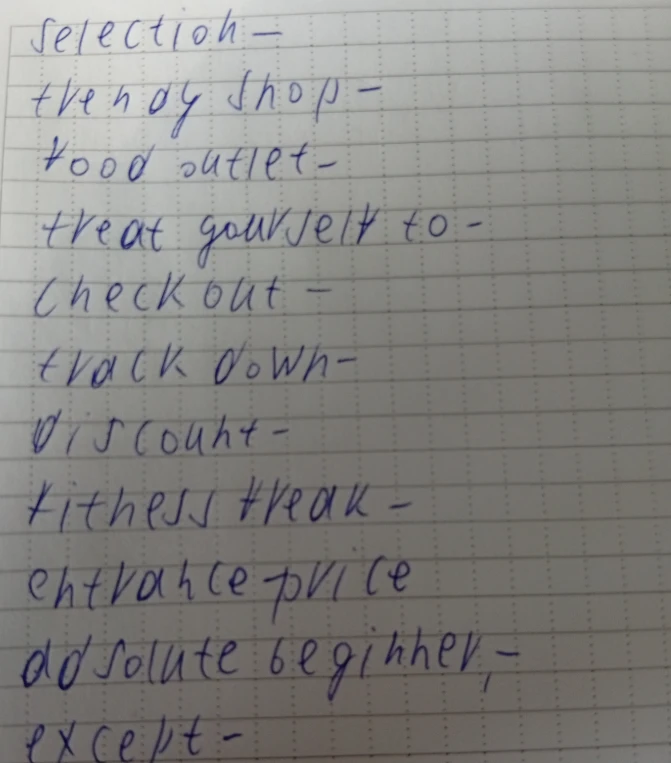 selection -
trendy shop -
food outlet -
treat yourself to -
check out -
track down -
discount -
fitness freak -
entrance price
adsolute beginner, -
except -